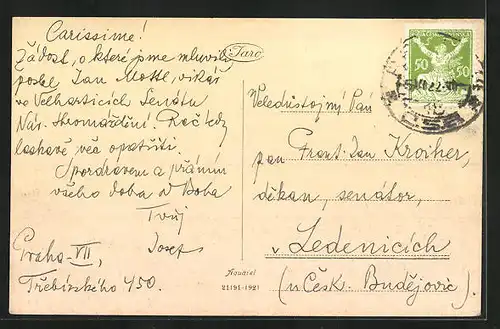 Carissime!
Žádost, o které jme mluvili
poslal Jan Mottl, vikář
ve Velharticích Senátu
Nár. Shromáždění. Rač tedy
laskavě věc opatřiti.
S pozdravem a přáním
všeho dobra od Boha
Tvůj
Josef
Praha-VII,
Třebízského 450.
Taro
Aquarel
21191-1921
POŠTA ČESKOSLOVENSKÁ
50 50
Veledůstojný Pán
pan Frant. Jan Kroiher,
děkan, senátor,
v Ledenicích
(u Česk. Budějovic)